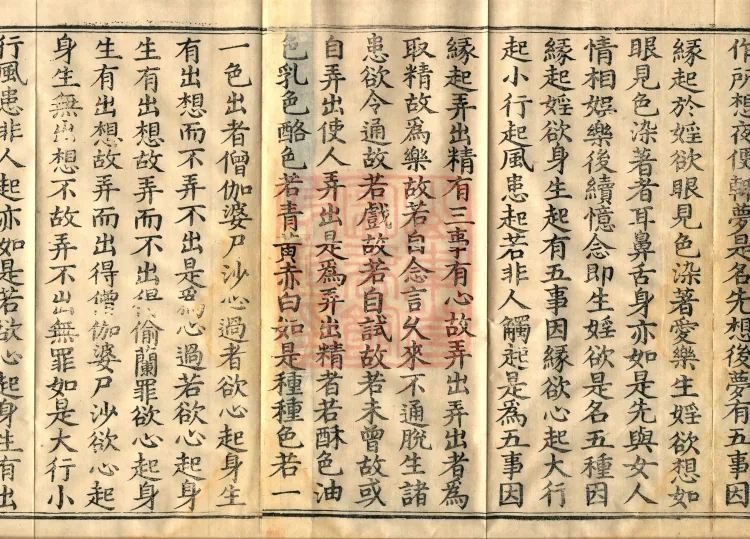 作所想夜便轉夢是名先想後夢有五事因
緣起於婬欲眼見色染著愛樂生婬欲想如
眼見色染著者耳鼻舌身亦如是先與女人
情相娛樂後續憶念即生婬欲是名五種因
緣起婬欲身生起有五事因緣欲心起大行
起小行起風患起若非人觸起是爲五事因
緣起弄出精有三事有心故弄出弄出者爲
取精故爲樂故若自念言久來不通脫生諸
患欲令通故若戲故若自試故若未曾故或
自弄出使人弄出是爲弄出精者若酥色油
色乳色酪色若青黃赤白如是種種色若一
一色出者僧伽婆尸沙心過者欲心起身生
有出想而不弄不出是爲心過若欲心起身
生有出想故弄而不出得偷蘭罪欲心起身
生有出想故弄而出得僧伽婆尸沙欲心起
身生無出想不故弄不出無罪如是大行小
行風患非人起亦如是若欲心起身生有出